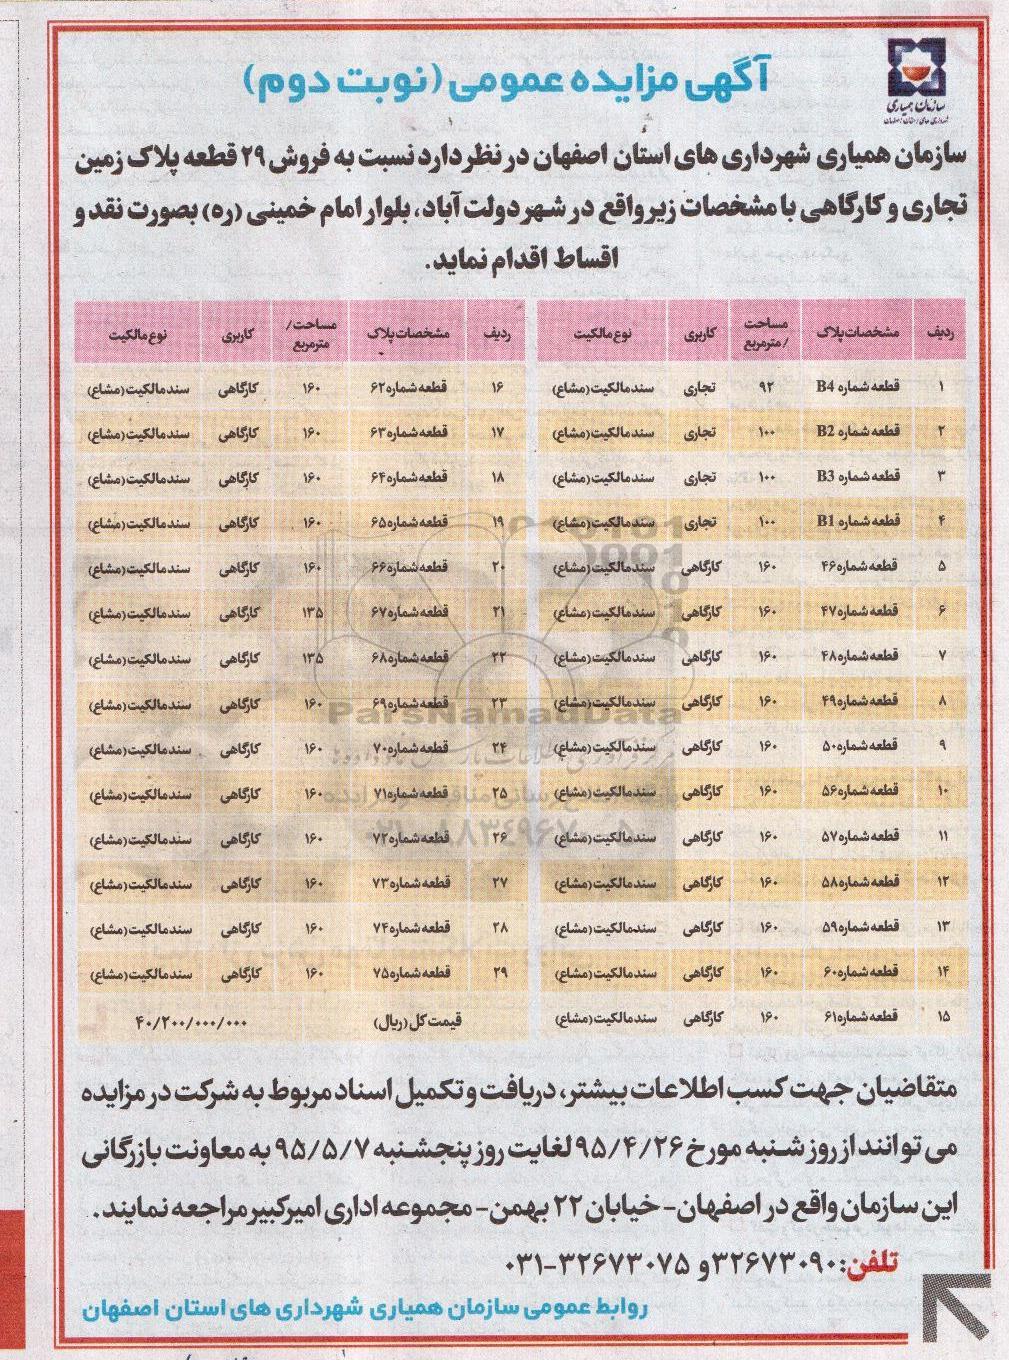 سازمان همیاری
شهرداری های استان اصفهان
آگهی مزایده عمومی (نوبت دوم)
سازمان همیاری شهرداری های استان اصفهان در نظر دارد نسبت به فروش ۲۹ قطعه پلاک زمین
تجاری و کارگاهی با مشخصات زیر واقع در شهر دولت آباد، بلوار امام خمینی (ره) بصورت نقد و
اقساط اقدام نماید.
ردیف مشخصات پلاک مساحت / مترمربع کاربری نوع مالکیت ردیف مشخصات پلاک مساحت / مترمربع کاربری نوع مالکیت
۱ قطعه شماره B4 ۹۲ تجاری سند مالکیت (مشاع) ۱۶ قطعه شماره ۶۲ ۱۶۰ کارگاهی سند مالکیت (مشاع)
۲ قطعه شماره B2 ۱۰۰ تجاری سند مالکیت (مشاع) ۱۷ قطعه شماره ۶۳ ۱۶۰ کارگاهی سند مالکیت (مشاع)
۳ قطعه شماره B3 ۱۰۰ تجاری سند مالکیت (مشاع) ۱۸ قطعه شماره ۶۴ ۱۶۰ کارگاهی سند مالکیت (مشاع)
۴ قطعه شماره B1 ۱۰۰ تجاری سند مالکیت (مشاع) ۱۹ قطعه شماره ۶۵ ۱۶۰ کارگاهی سند مالکیت (مشاع)
۵ قطعه شماره ۴۶ ۱۶۰ کارگاهی سند مالکیت (مشاع) ۲۰ قطعه شماره ۶۶ ۱۶۰ کارگاهی سند مالکیت (مشاع)
۶ قطعه شماره ۴۷ ۱۶۰ کارگاهی سند مالکیت (مشاع) ۲۱ قطعه شماره ۶۷ ۱۳۵ کارگاهی سند مالکیت (مشاع)
۷ قطعه شماره ۴۸ ۱۶۰ کارگاهی سند مالکیت (مشاع) ۲۲ قطعه شماره ۶۸ ۱۳۵ کارگاهی سند مالکیت (مشاع)
۸ قطعه شماره ۴۹ ۱۶۰ کارگاهی سند مالکیت (مشاع) ۲۳ قطعه شماره ۶۹ ۱۶۰ کارگاهی سند مالکیت (مشاع)
۹ قطعه شماره ۵۰ ۱۶۰ کارگاهی سند مالکیت (مشاع) ۲۴ قطعه شماره ۷۰ ۱۶۰ کارگاهی سند مالکیت (مشاع)
۱۰ قطعه شماره ۵۶ ۱۶۰ کارگاهی سند مالکیت (مشاع) ۲۵ قطعه شماره ۷۱ ۱۶۰ کارگاهی سند مالکیت (مشاع)
۱۱ قطعه شماره ۵۷ ۱۶۰ کارگاهی سند مالکیت (مشاع) ۲۶ قطعه شماره ۷۲ ۱۶۰ کارگاهی سند مالکیت (مشاع)
۱۲ قطعه شماره ۵۸ ۱۶۰ کارگاهی سند مالکیت (مشاع) ۲۷ قطعه شماره ۷۳ ۱۶۰ کارگاهی سند مالکیت (مشاع)
۱۳ قطعه شماره ۵۹ ۱۶۰ کارگاهی سند مالکیت (مشاع) ۲۸ قطعه شماره ۷۴ ۱۶۰ کارگاهی سند مالکیت (مشاع)
۱۴ قطعه شماره ۶۰ ۱۶۰ کارگاهی سند مالکیت (مشاع) ۲۹ قطعه شماره ۷۵ ۱۶۰ کارگاهی سند مالکیت (مشاع)
۱۵ قطعه شماره ۶۱ ۱۶۰ کارگاهی سند مالکیت (مشاع) قیمت کل (ریال) ۴۰/۲۰۰/۰۰۰/۰۰۰
ParsNamadData
متقاضیان جهت کسب اطلاعات بیشتر، دریافت و تکمیل اسناد مربوط به شرکت در مزایده
می توانند از روز شنبه مورخ ۹۵/۴/۲۶ لغایت روز پنجشنبه ۹۵/۵/۷ به معاونت بازرگانی
این سازمان واقع در اصفهان - خیابان ۲۲ بهمن - مجموعه اداری امیرکبیر مراجعه نمایند.
تلفن: ۳۲۶۷۳۰۹۰ و ۳۲۶۷۳۰۷۵-۰۳۱
روابط عمومی سازمان همیاری شهرداری های استان اصفهان